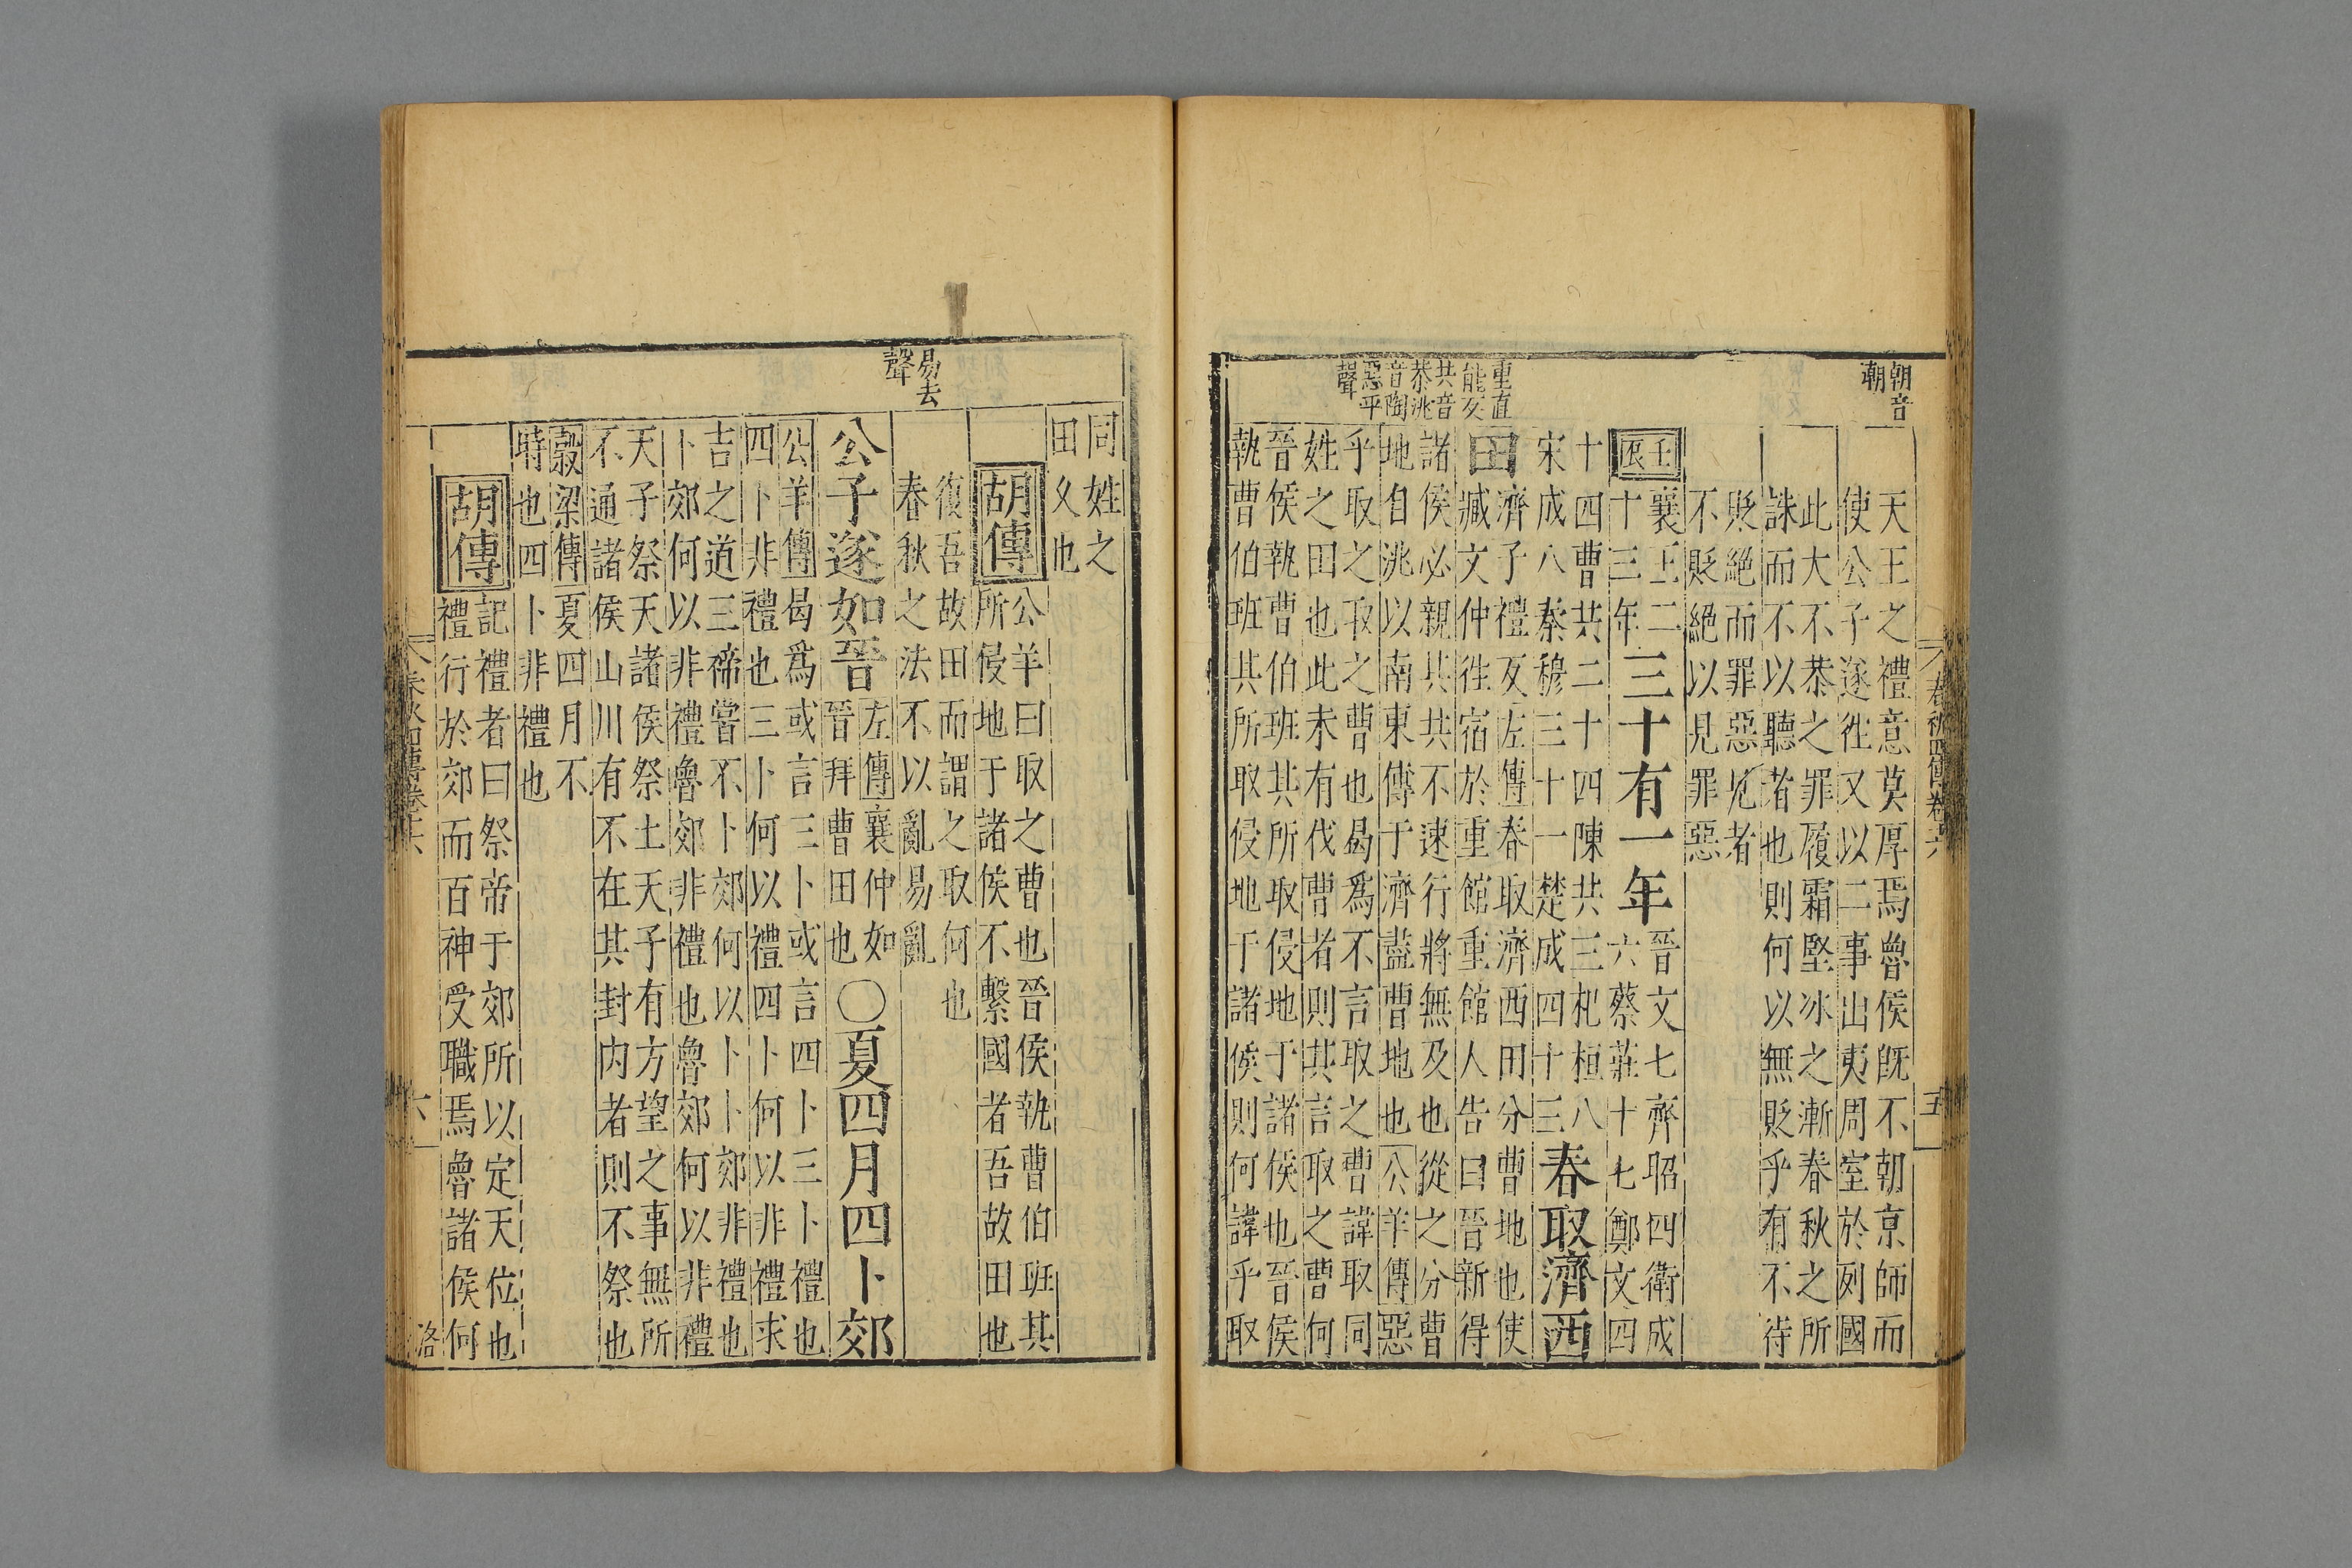 朝音
潮
天王之禮意莫厚焉魯侯旣不朝京師而
使公子遂徃又以二事出夷周室於列國
此大不恭之罪履霜堅冰之漸春秋之所
誅而不以聽者也則何以無貶乎有不待
貶絕而罪惡見者
不貶絕以見罪惡
壬辰
襄王二
十三年
三十有一年
晉文七齊昭四衛成
六蔡莊十七鄭文四
十四曹共二十四陳共三杞桓八
宋成八秦穆三十一楚成四十三
春取濟西
重直
能反
共音
恭洮
音陶
惡平
聲
田
濟子禮反左傳春取濟西田分曹地也使
臧文仲徃宿於重館重館人告曰晉新得
諸侯必親其共不速行將無及也從之分曹
地自洮以南東傳于濟盡曹地也公羊傳惡
乎取之取之曹也曷爲不言取之曹諱取同
姓之田也此未有伐曹者則其言取之曹何
晉侯執曹伯班其所取侵地于諸侯也晉侯
執曹伯班其所取侵地于諸侯則何諱乎取
春秋四傳卷十六
五
同姓之
田久也
胡傳
公羊曰取之曹也晉侯執曹伯班其
所侵地于諸侯不繫國者吾故田也
復吾故田而謂之取何也
春秋之法不以亂易亂
易去
聲
公子遂如晉
左傳襄仲如
晉拜曹田也
○夏四月四卜郊
公羊傳曷爲或言三卜或言四卜三卜禮也
四卜非禮也三卜何以禮四卜何以非禮求
吉之道三禘嘗不卜郊何以卜卜郊非禮也
卜郊何以非禮魯郊非禮也魯郊何以非禮
天子祭天諸侯祭土天子有方望之事無所
不通諸侯山川有不在其封内者則不祭也
糓梁傳夏四月不
時也四卜非禮也
胡傳
記禮者曰祭帝于郊所以定天位也
禮行於郊而百神受職焉魯諸侯何
春秋四傳卷十六
六
洛